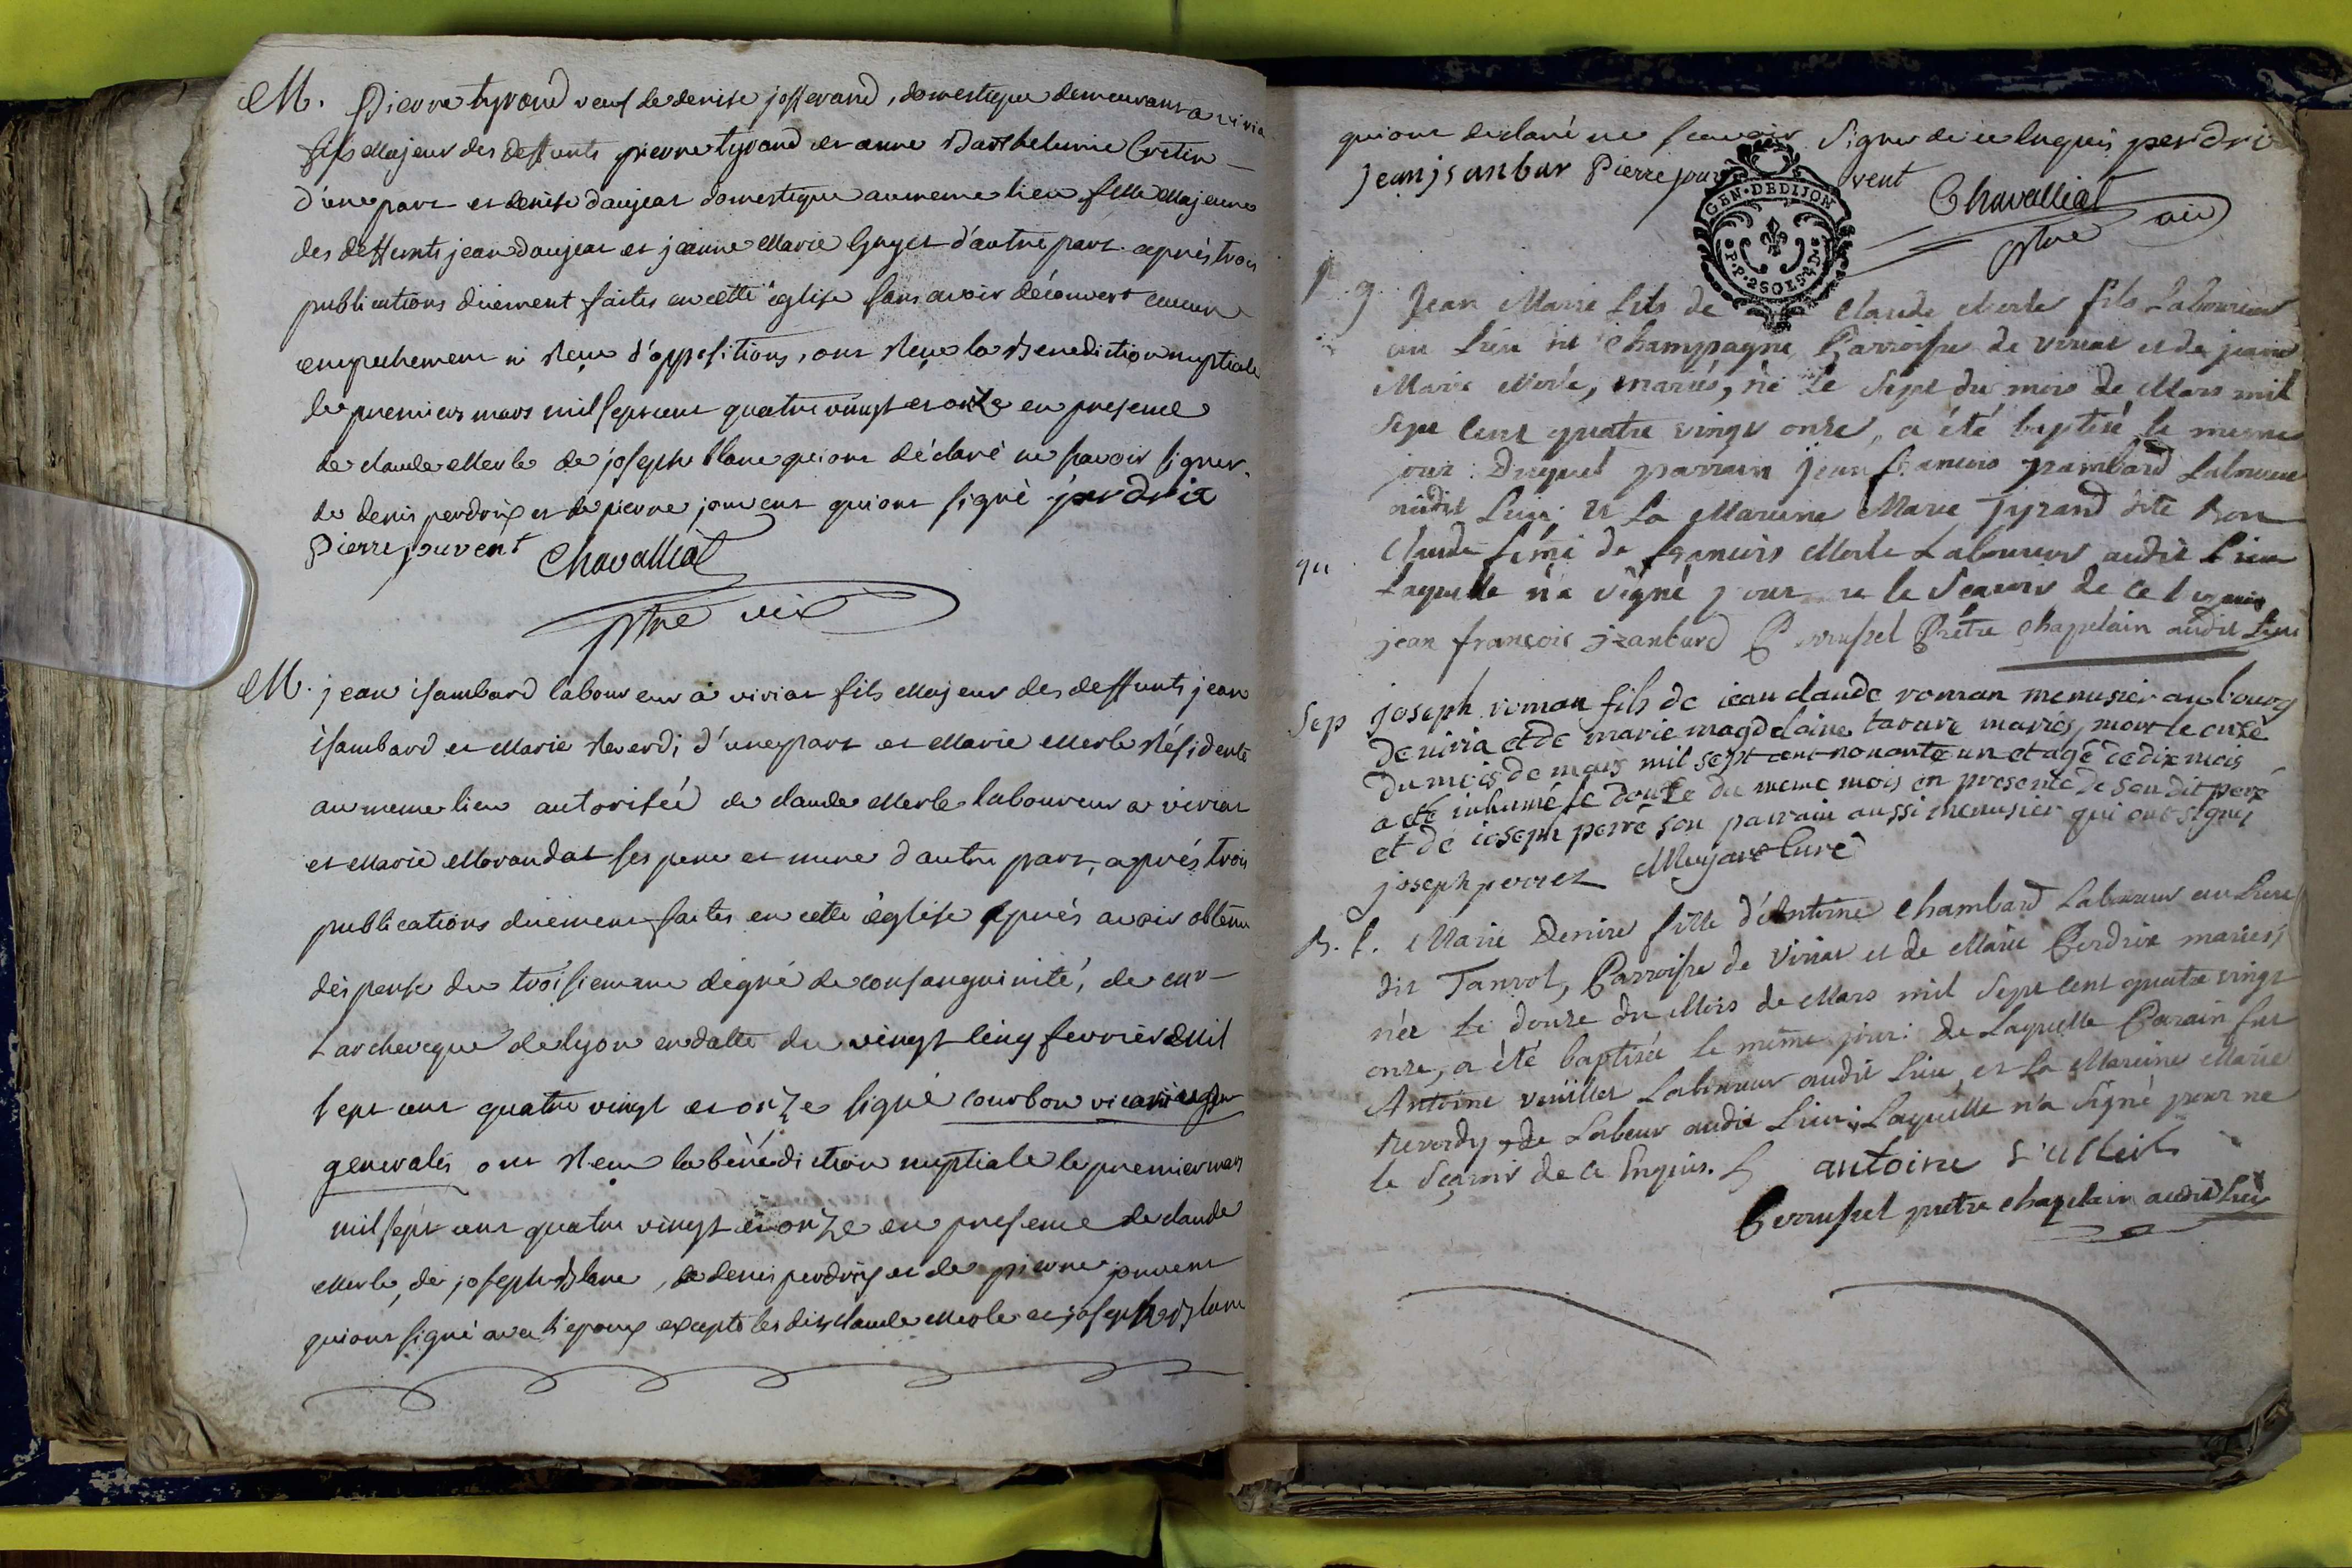 M. Pierre tyrand veuf de denise josserand, domestique demeurant a viria
fils Majeur des deffunts pierre tyrand et anne Barthelemie Cretin
d'une part et denise daujat domestique au meme lieu fille Majeure
des deffunts jean daujat et jeanne Marie Guyet d'autre part après trois
publications duement faites en cette église sans avoir découvert aucun
empechement ni reçu d'oppositions, ont reçu la Benediction nuptiale
le premier mars mil sept cent quatre vingt et onze en presence
de claude Merle de joseph blanc qui ont déclaré ne savoir signer
de denis perdrix et de pierre jouvent qui ont signé perdrix
Pierre jouvent Chavalliat
ptre vic
M. jean isambard laboureur a viriat fils Majeur des deffunts jean
isambard et Marie Reverdi d'une part et Marie Merle Résidente
au meme lieu autorisée de claude Merle laboureur a viriat
et Marie Morandat ses pere et mere d'autre part, après trois
publications duement faites en cette église après avoir obtenu
dispense du troisieme dégré de consanguinité, de
L'archeveque de lyon en datte du vingt cinq fevrier mil
sept cent quatre vingt et onze signé courbon vicaire
generale ont reçu la bénédiction nuptiale le premier mars
mil sept cent quatre vingt et onze en presence de claude
Merle, de joseph Blanc, de denis perdrix et de pierre jouvent
qui ont signé avec l'epoux excepté les dits claude Merle et joseph Blanc
qui ont declaré ne scavoir signer de ce enquis perdrix
jean jsanbar Pierre jouvent Chavalliat
ptre vic
GEN·DEDIJON
Jean Marie fils de Claude Merle fils Laboureur
au Lieu dit Champagne Parroisse de viriat et de jeanne
Marie Merle, mariés, né le Sept du mois de Mars mil
Sept Cent quatre vingt onze, a été baptisé le meme
jour: Duquel parrain jean francois isambard Laboureur
audit Lieu, et La Mareine Marie Tyrand dite
Claude feme de francois Merle Laboureur audit Lieu
Laquelle n'a signé pour ne le Scavoir de ce Enquis
jean françois jzanbard Perrussel Prêtre chapelain audit Lieu
Sep joseph roman fils de jean claude roman menusier au bourg
de viria et de marie magdelaine tavare mariés, mort le onze
du mois de mars mil sept cent nonante un et agé de dix mois
a été inhumé le douze du meme mois en presence de son dit pere
et de joseph perré son parrain aussi menusier qui ont signés
joseph perret Curé
B. f. Marie Denise fille d'Antoine Chambard Laboureur au Lieu
dit Tanvol, Parroisse de Viriat et de Marie Perdrix mariés,
née le douze du Mois de Mars mil Sept Cent quatre vingt
onze, a été baptisée le même jour: de Laquelle Parain fut
Antoine veüillet Laboureur audit Lieu, et La Mareine Marie
Reverdy, de Labeur audit Lieu, Laquelle n'a signé pour ne
le Sçavoir de ce Enquis. antoine
Perrussel pretre chapelain audit Lieu